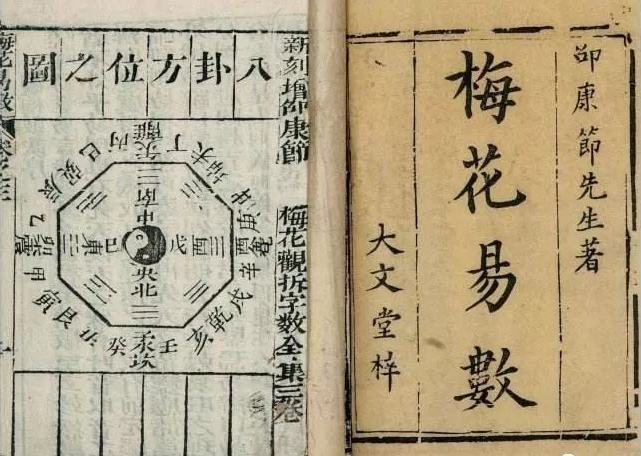 邵康節先生著
梅花易數
大文堂梓
新刻增邵康節
梅花觀折字數全集三卷
八卦方位之圖
丙午離丁
未坤申
庚酉兌辛
戌乾亥
壬子坎癸
丑艮寅
甲卯震乙
辰巽巳
南
中央
北
東
己
戊
梅花易數